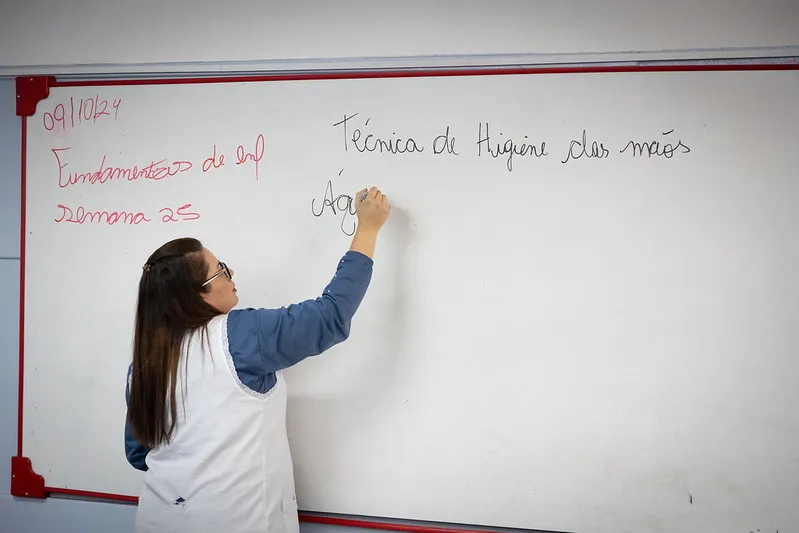 09/10/24
Fundamentos de enf
Semana 25
Técnica de Higiene das mãos
Águ